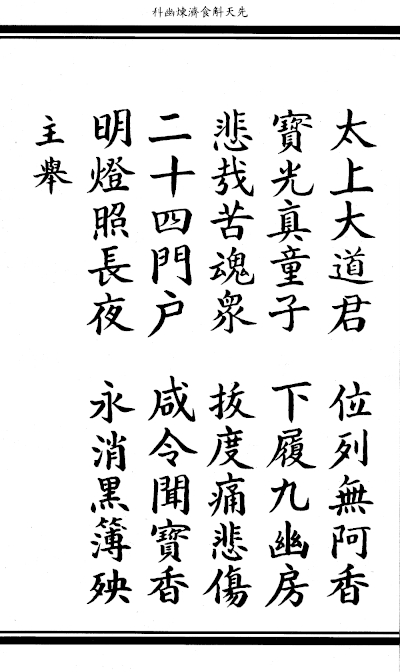 先天斛食濟煉幽科
太上大道君 位列無阿香
寶光真童子 下履九幽房
悲哉苦魂衆 拔度痛悲傷
二十四門户 咸令聞寶香
明燈照長夜 永消黑簿殃
主舉